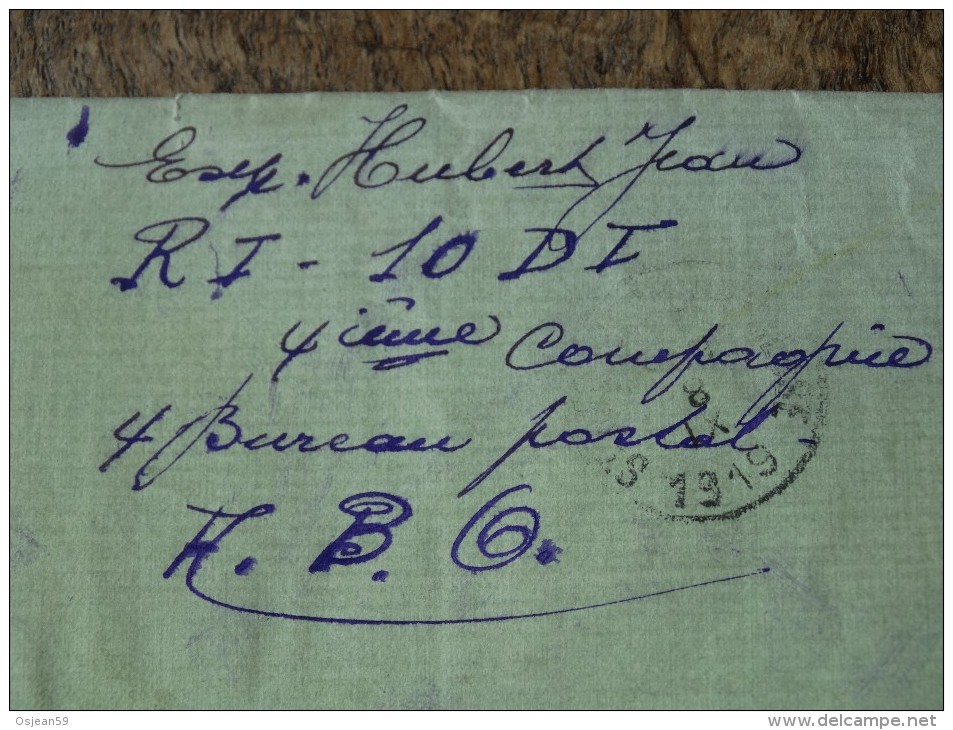 Exp. Hubert Jean
RI - 10 DI
4ième Compagnie
4 Bureau postal -
A. B. O.
1919
Osjean59
www.delcampe.net